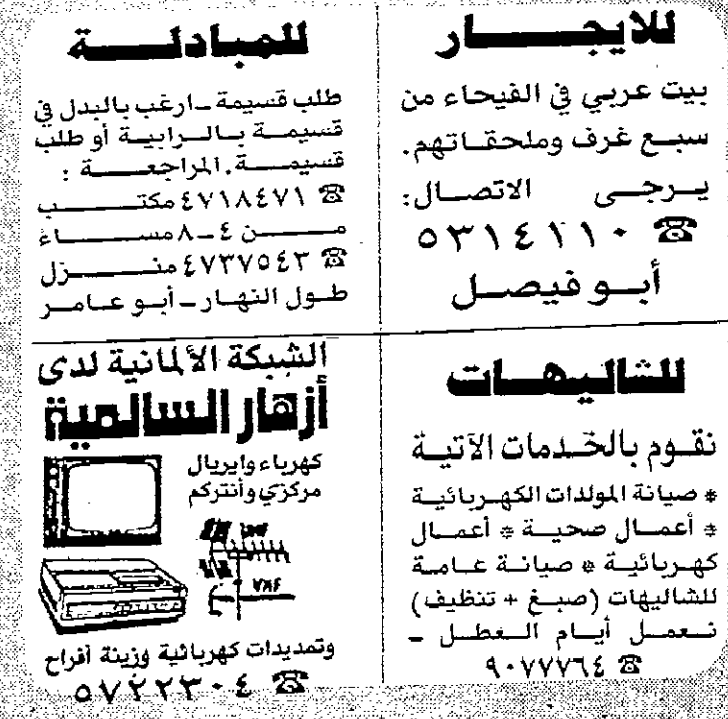 للايجار
بيت عربي في الفيحاء من
سبع غرف وملحقاتهم.
يرجى الاتصال:
☎ ٥٣١٤١١٠
أبو فيصل
للمبادلة
طلب قسيمة ـ ارغب بالبدل في
قسيمة بالرابية أو طلب
قسيمة. المراجعة :
☎ ٤٧١٨٤٧١ مكتب
من ٤ ـ ٨ مساء
☎ ٤٧٣٧٥٤٣ منزل
طول النهار ـ أبو عامر
للشاليهات
نقوم بالخدمات الآتية
* صيانة المولدات الكهربائية
* أعمال صحية * أعمال
كهربائية * صيانة عامة
للشاليهات (صبغ + تنظيف)
نعمل أيام العطل ـ
☎ ٩٠٧٧٧٦٤
الشبكة الألمانية لدى
أزهار السالمية
كهرباء وايريال
مركزي وأنتركم
UHF
VHF
وتمديدات كهربائية وزينة أفراح
☎ ٥٧٢٢٣٠٤